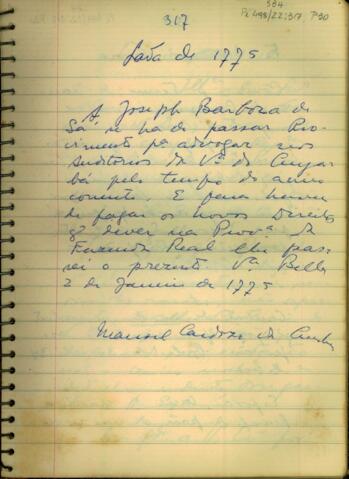 584
Pi 498/22:317, P90
317
de 1775
A Joseph Barboza de
Sá se ha de passar Pro-
vimento pª advogar nos
Auditorios da Vª do Cuya-
bá pelo tempo do anno
corrente. E para haver
de pagar os novos Direitos
q̃ dever na Provª da
Fazenda Real lhe pas-
sei o prezente Vª Bella
2 de Janeiro de 1775
Manoel Cardozo da Cunha